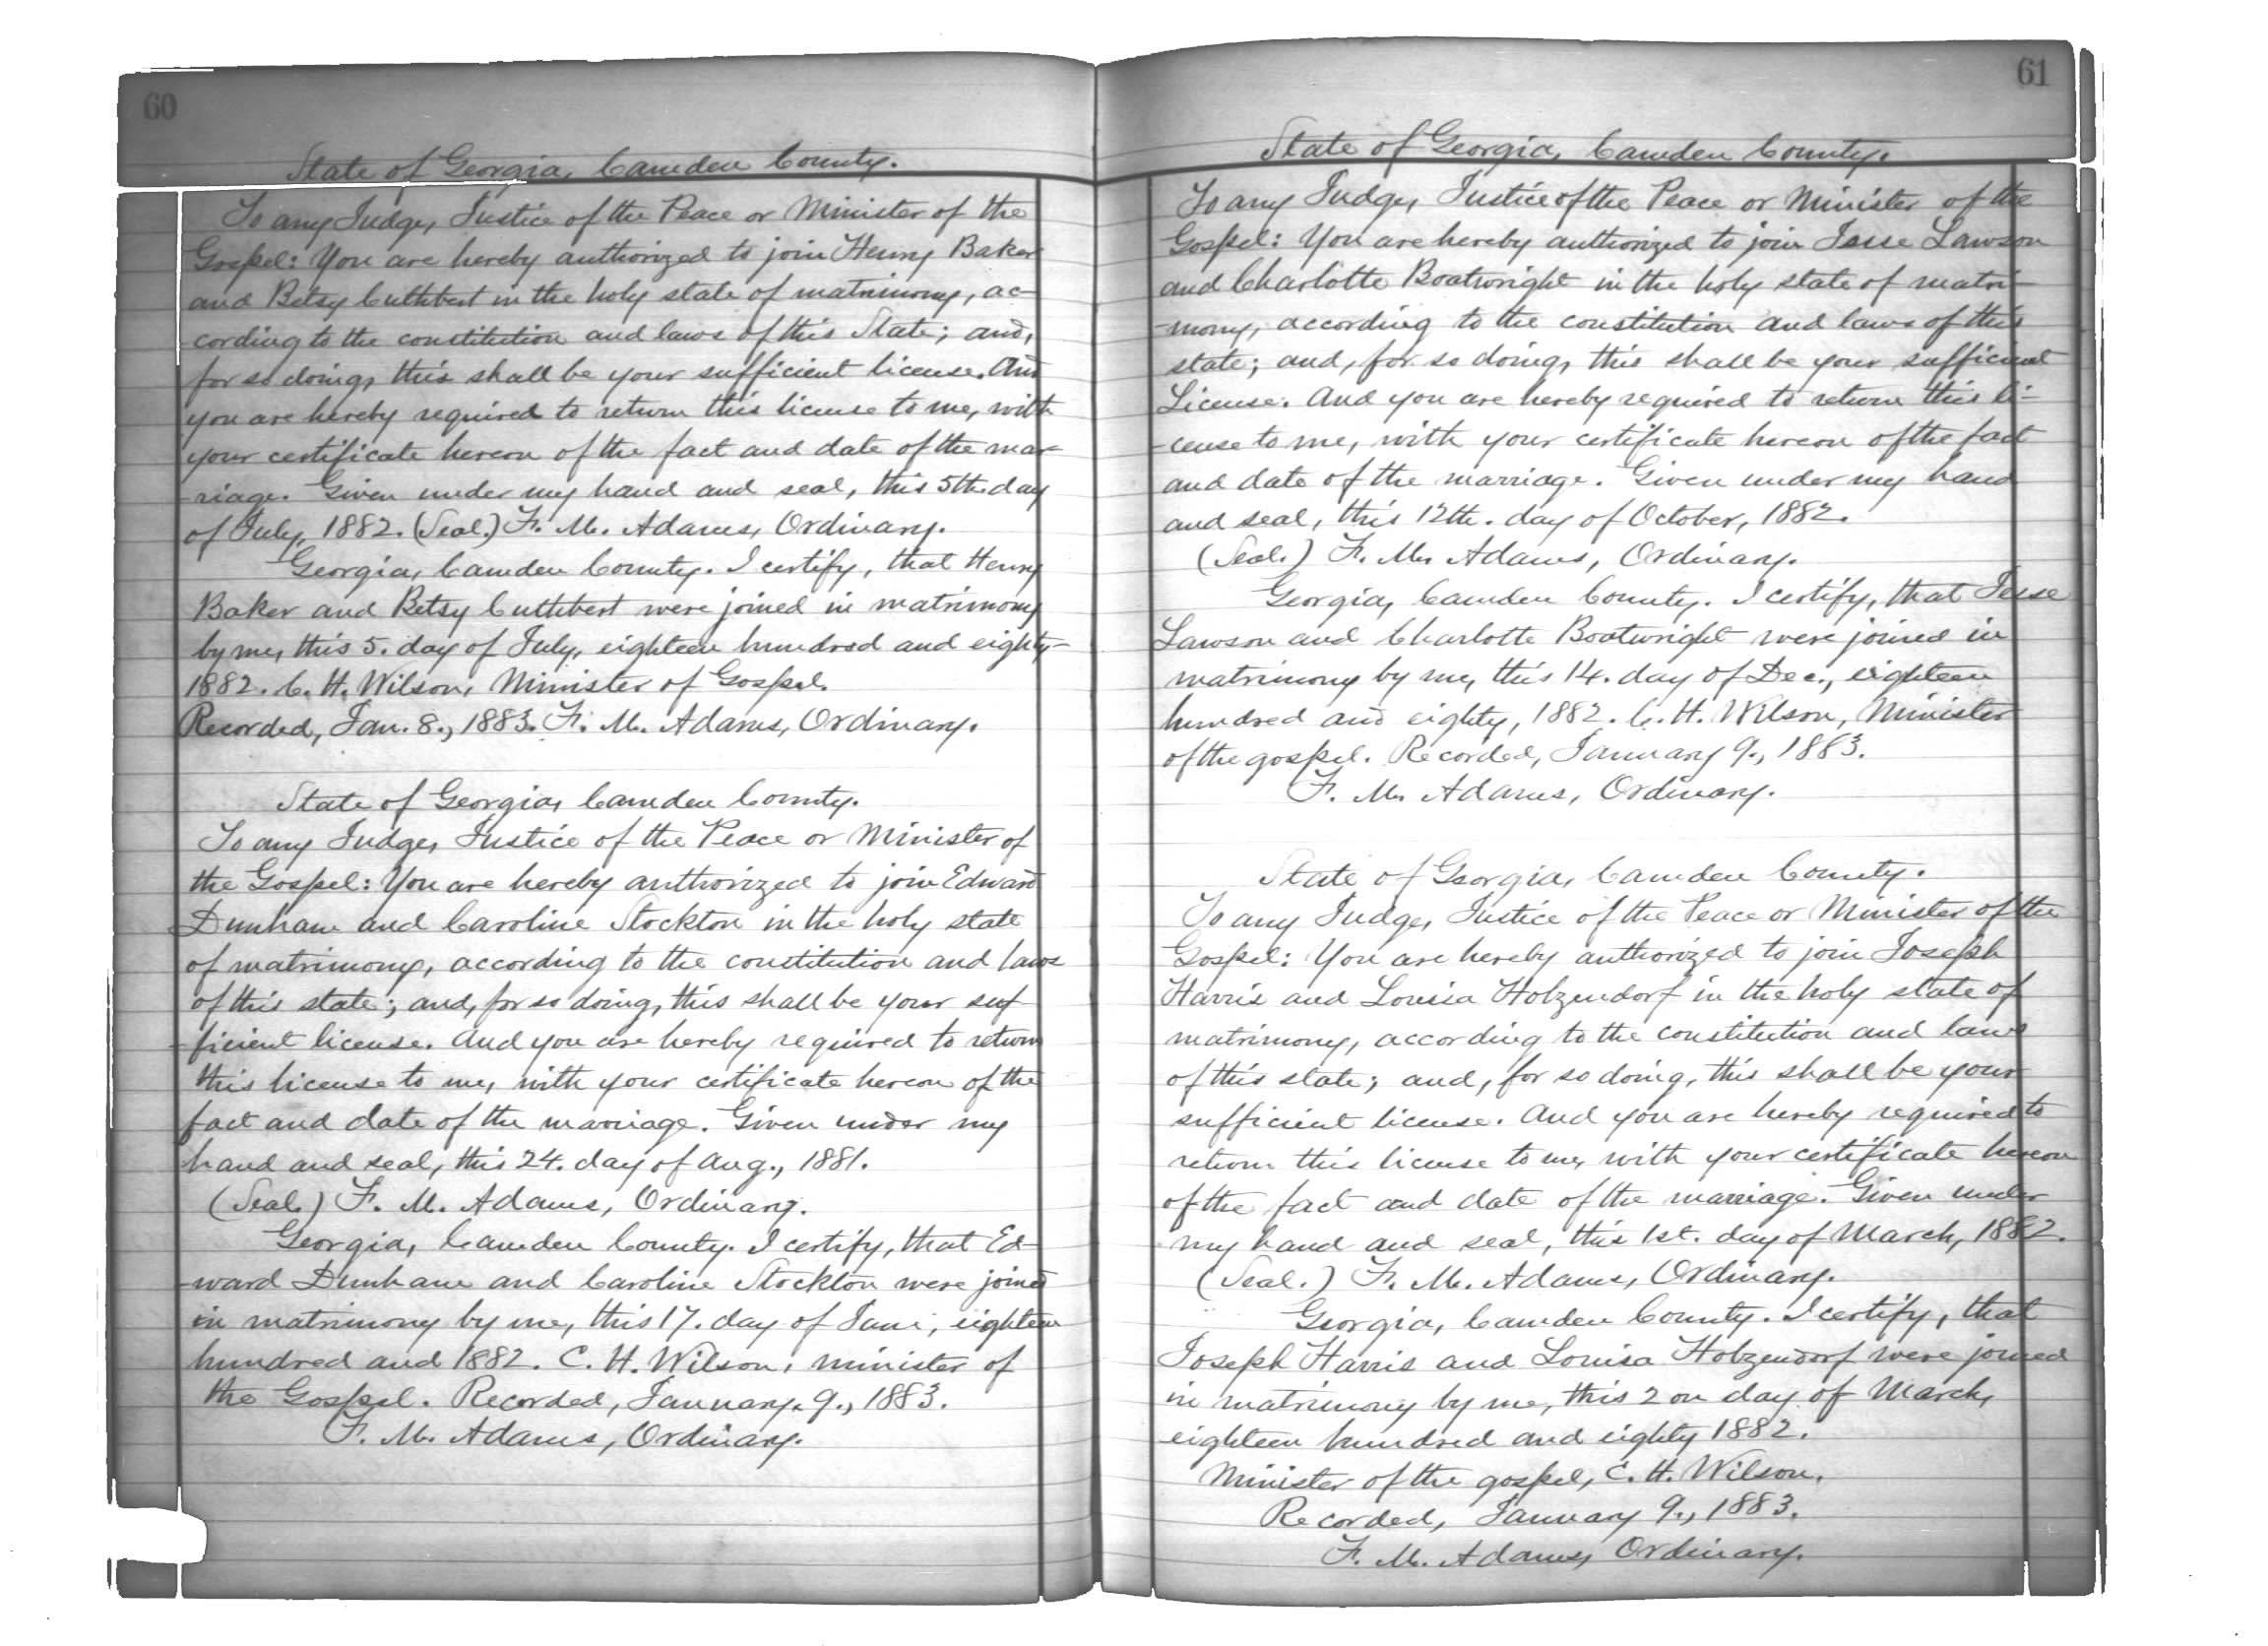 60
State of Georgia, Camden County.
To any Judge, Justice of the Peace or Minister of the
Gospel: You are hereby authorized to join Henry Baker
and Betsy Cuthbert in the holy state of matrimony, ac-
cording to the constitution and laws of this State; and,
for so doing, this shall be your sufficient license. And
you are hereby required to return this license to me, with
your certificate hereon of the fact and date of the mar-
-riage. Given under my hand and seal, this 5th. day
of July, 1882. (Seal.) F. M. Adams, Ordinary.
Georgia, Camden County. I certify, that Henry
Baker and Betsy Cuthbert were joined in matrimony
by me, this 5. day of July, eighteen hundred and eighty-
1882. C. H. Wilson, Minister of Gospel.
Recorded, Jan. 8., 1883. F. M. Adams, Ordinary.
State of Georgia, Camden County.
To any Judge, Justice of the Peace or Minister of
the Gospel: You are hereby authorized to join Edward
Dunham and Caroline Stockton in the holy state
of matrimony, according to the constitution and laws
of this state; and, for so doing, this shall be your suf
-ficient license. And you are hereby required to return
this license to me, with your certificate hereon of the
fact and date of the marriage. Given under my
hand and seal, this 24. day of Aug., 1881.
(Seal.) F. M. Adams, Ordinary.
Georgia, Camden County. I certify, that Ed-
-ward Dunham and Caroline Stockton were joined
in matrimony by me, this 17. day of , eighteen
hundred and 1882. C. H. Wilson, minister of
the Gospel. Recorded, January, 9., 1883.
F. M. Adams, Ordinary.
61
State of Georgia, Camden County.
To any Judge, Justice of the Peace or Minister of the
Gospel: You are hereby authorized to join Jesse Lawson
and Charlotte Boatwright in the holy state of matri-
-mony, according to the constitution and laws of this
state; and, for so doing, this shall be your sufficient
License. And you are hereby required to return this li-
-cense to me, with your certificate hereon of the fact
and date of the marriage. Given under my hand
and seal, this 12th. day of October, 1882.
(Seal.) F. M. Adams, Ordinary.
Georgia, Camden County. I certify, that Jesse
Lawson and Charlotte Boatwright were joined in
matrimony by me, this 14. day of Dec., eighteen
hundred and eighty, 1882. C. H. Wilson, Minister
of the gospel. Recorded, January 9., 1883.
F. M. Adams, Ordinary.
State of Georgia, Camden County.
To any Judge, Justice of the Peace or Minister of the
Gospel: You are hereby authorized to join Joseph
Harris and Louisa Holzendorf in the holy state of
matrimony, according to the constitution and laws
of this state; and, for so doing, this shall be your
sufficient license. And you are hereby required to
return this license to me, with your certificate hereon
of the fact and date of the marriage. Given under
my hand and seal, this 1st. day of March, 1882.
(Seal.) F. M. Adams, Ordinary.
Georgia, Camden County. I certify, that
Joseph Harris and Louisa Holzendorf were joined
in matrimony by me, this 2 on day of March,
eighteen hundred and eighty 1882.
Minister of the gospel, C. H. Wilson.
Recorded, January 9., 1883.
F. M. Adams, Ordinary.